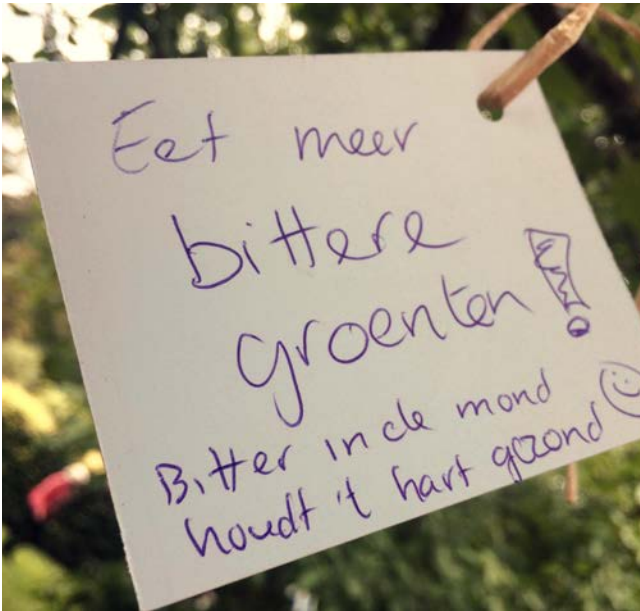 Eet meer
bittere
groenten!
Bitter in de mond
houdt 't hart gezond